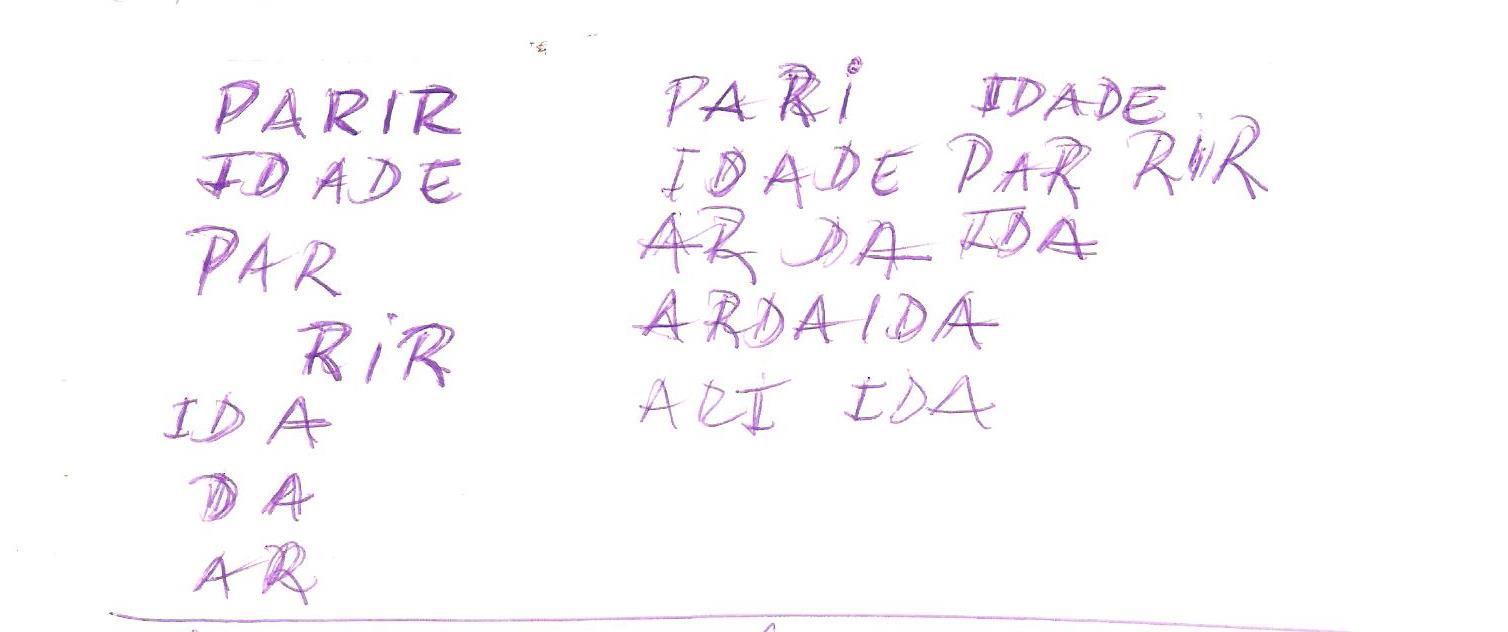 PARIR
IDADE
PAR
RiR
IDA
DA
AR
PARi IDADE
IDADE PAR RiR
AR DA IDA
ARDAIDA
ARI IDA